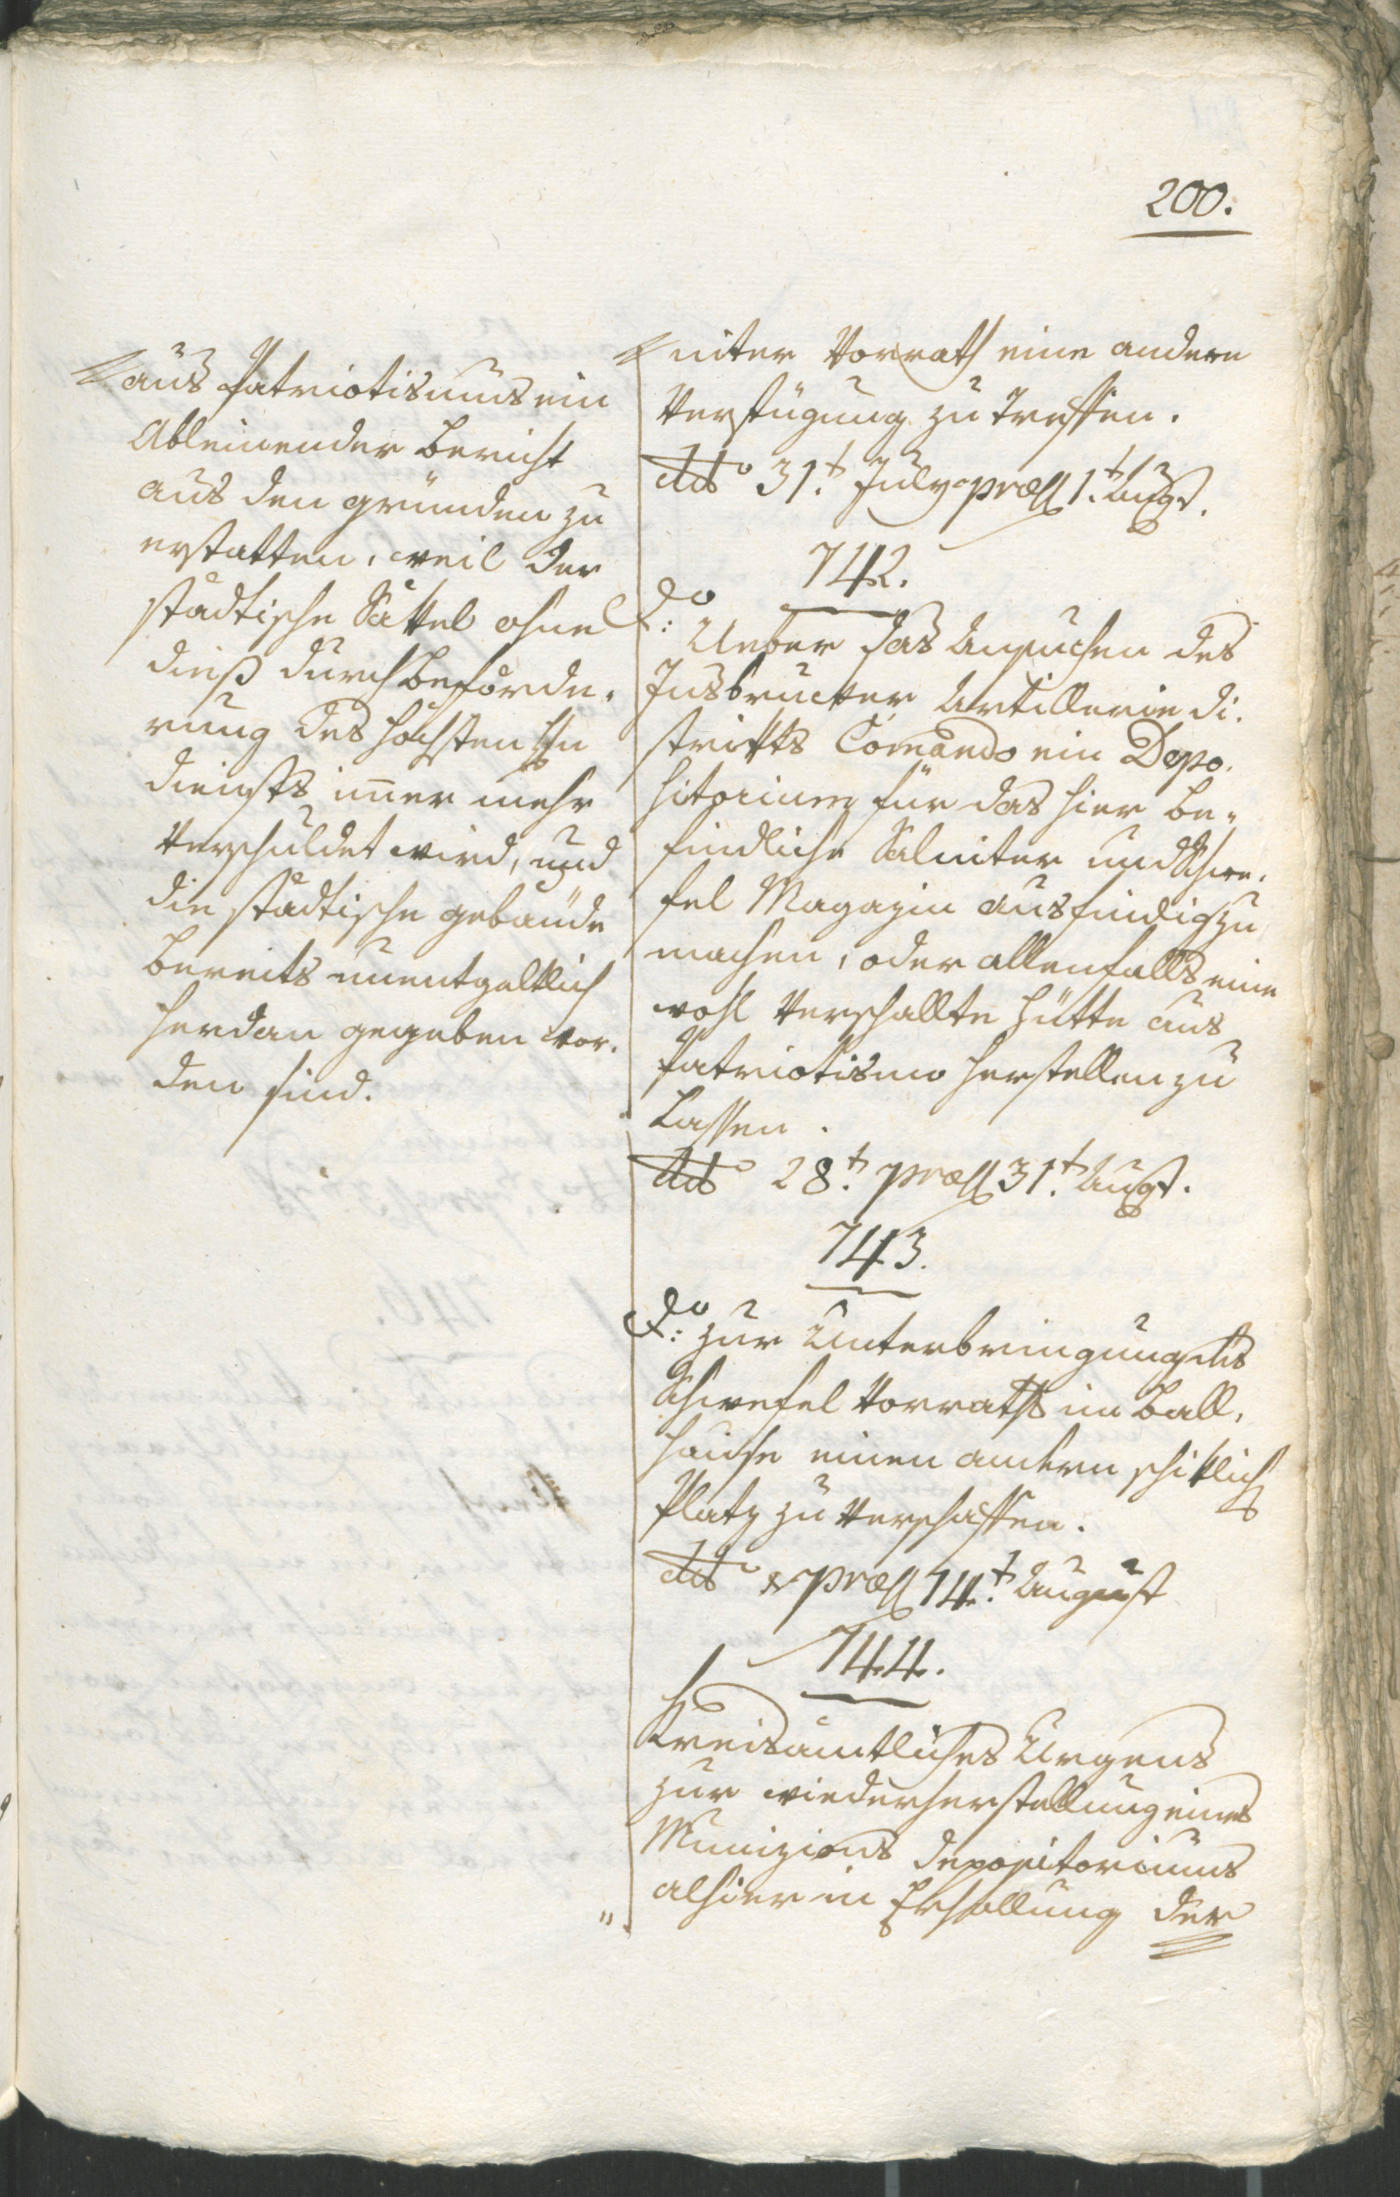 200.
aus Patriotismus ein
Ableinender Bericht
aus den gründen zu
erstatten, weil der
städtische Säkel ohne
dieß durch Beförde,
rung des höchsten
diensts imer mehr
verschuldet wird, und
die städtische gebäude
bereits unentgeltlich
herdan gegeben wor,
den sind.
niter Vorrath eine andere
Verfügung zu treffen.
ddto 31.t July praes 1.t Augst.
742.
do:
Ueber das Ansuchen des
Insbrucker Artillerie di,
strikts Comando ein Depo,
sitorium für das hier be,
findliche Salniter und Schwe,
fel Magazin ausfindig zu
machen, oder allenfalls eine
wohl verschallte Hütte aus
Patriotismo herstellen zu
Lassen.
ddto 28.t praes 31.t Augst.
743.
do: zur Unterbringung des
Schwefel Vorraths im Ball,
hause einen andern schiklich
Platz zu verschaffen.
ddto & praes 14.t August
744.
Kreisämtliches Urgens
zur wiederherstellung eines
Munizions Depositoriums
alhier in Erhollung der